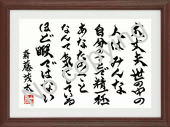 大丈夫世の中の
人はみんな
自分のことで精一杯
あなたのこと
なんて気にしている
ほど暇ではない
斎藤茂太